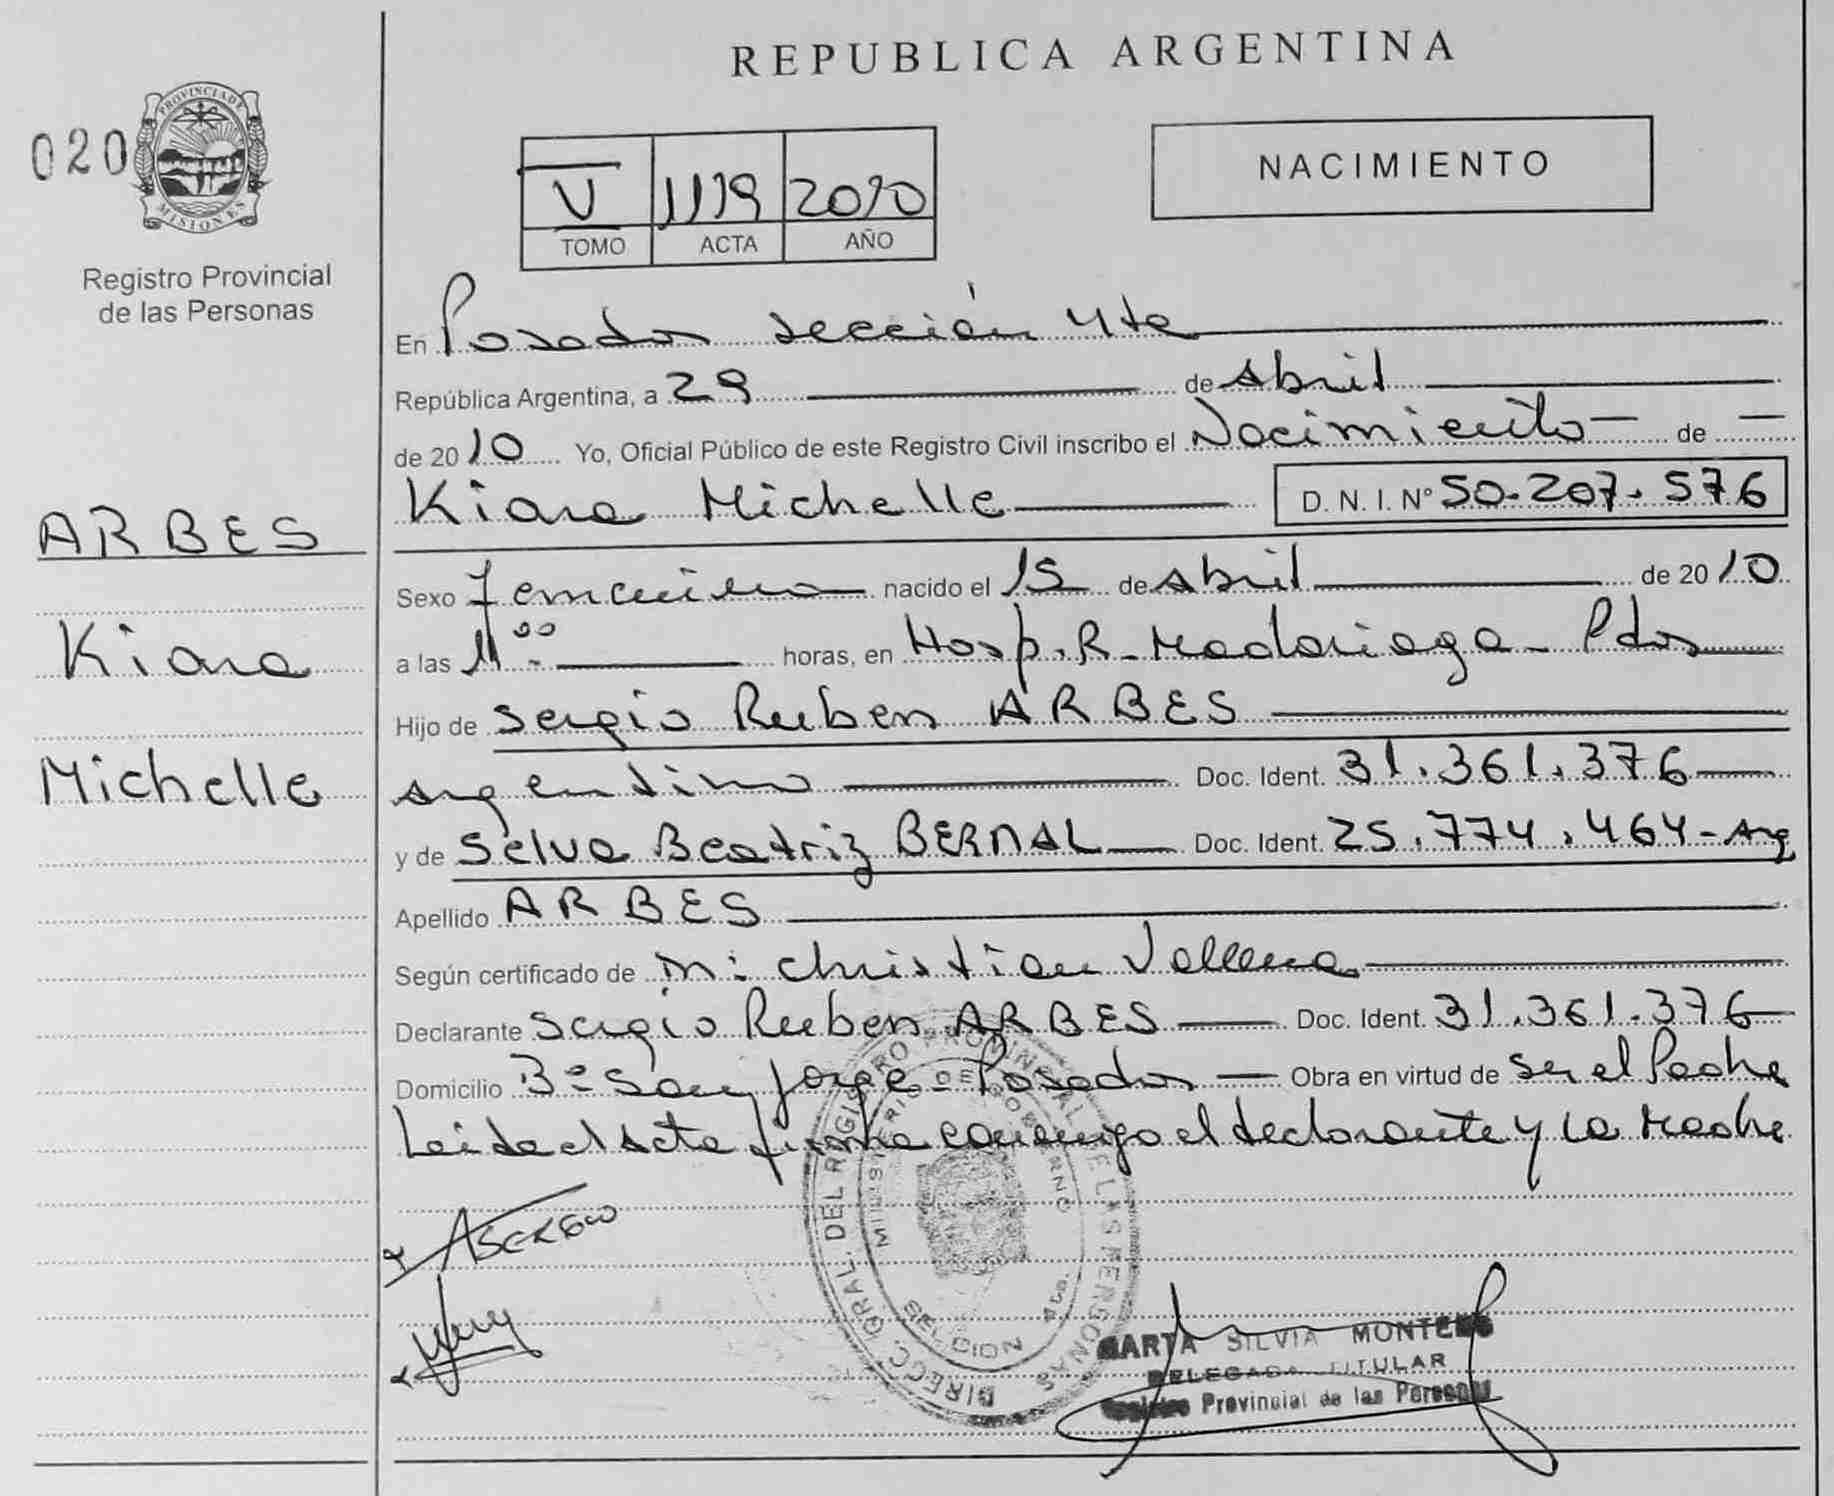 REPUBLICA ARGENTINA
020
PROVINCIA DE
MISIONES
Registro Provincial
de las Personas
NACIMIENTO
V 1119 2010
TOMO ACTA AÑO
En Posadas sección 4ta
República Argentina, a 29 de Abril
de 2010 Yo, Oficial Público de este Registro Civil inscribo el Nacimiento - de -
Kiara Michelle D. N. I. Nº 50.207.576
ARBES
Kiara
Michelle
Sexo Femenino nacido el 15 de Abril de 2010
a las 11:00 horas, en Hosp. R. Madariaga - Pdas
Hijo de Sergio Ruben ARBES
Argentino Doc. Ident. 31.361.376
y de Selva Beatriz BERNAL Doc. Ident. 25.774.464 - Arg
Apellido ARBES
Según certificado de M: Christian
Declarante Sergio Ruben ARBES Doc. Ident. 31.361.376
Domicilio Bº San Jorge - Posadas Obra en virtud de ser el Padre
Leida el Acta firma conmigo el declarante y la Madre
DIRECC. GRAL. DEL REGISTRO PROVINCIAL DE LAS PERSONAS
MINISTERIO DE GOBIERNO
SILVIA MONTERO
DELEGADA TITULAR
Registro Provincial de las Personas